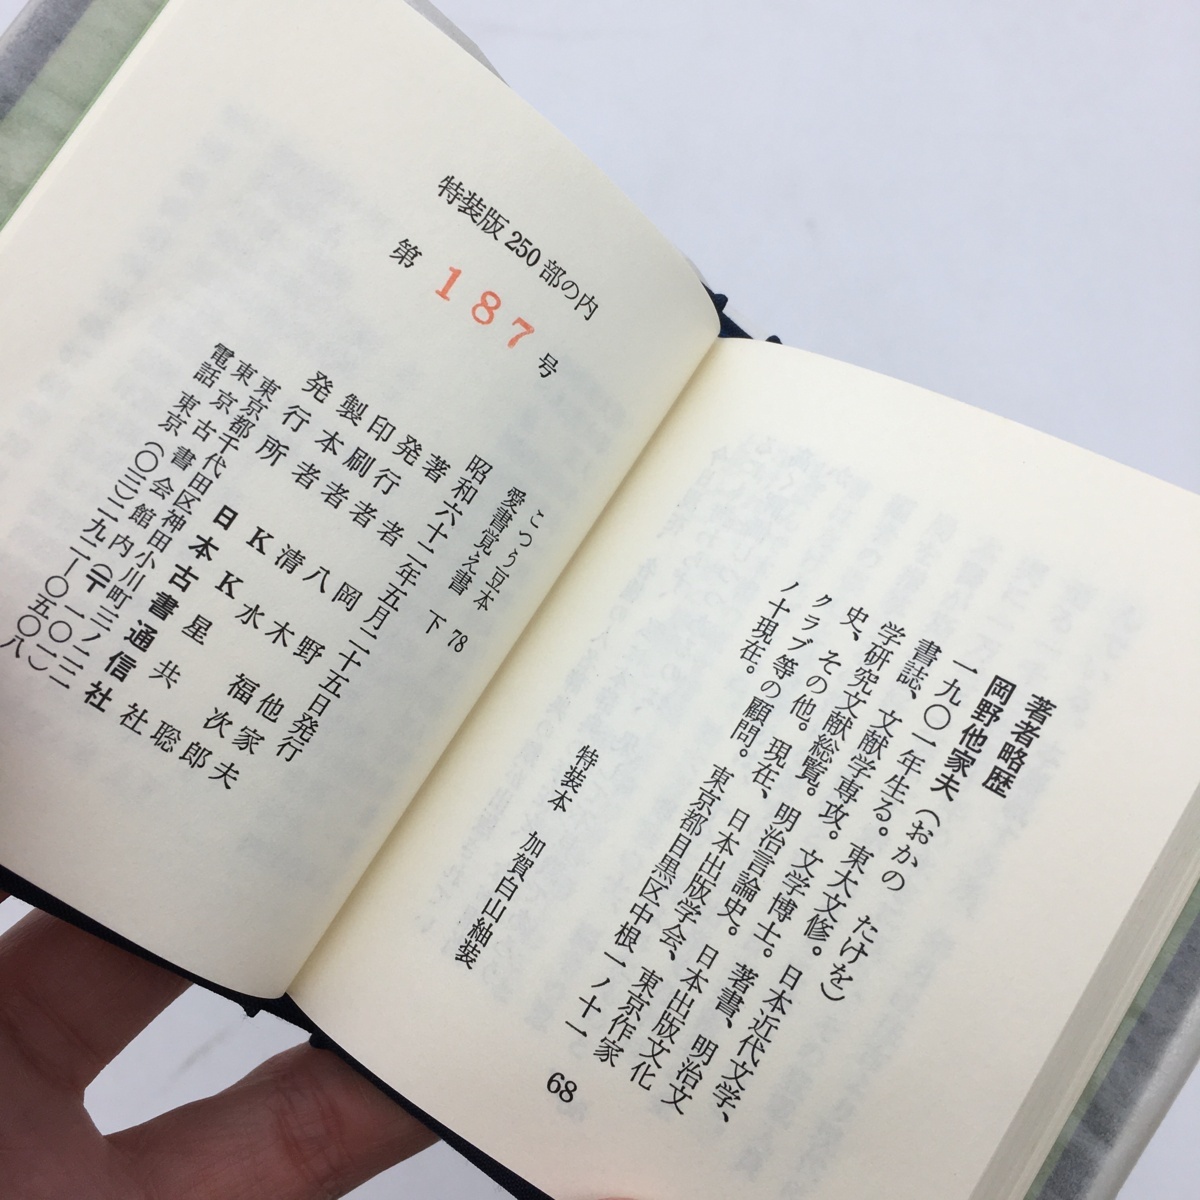 著者略歴
岡野他家夫(おかの たけを)
一九〇一年生る。東大文修。日本近代文学、
書誌、文献学専攻。文学博士。著書、明治文
学研究文献総覧。明治言論史。日本出版文化
史、その他。現在、日本出版学会、東京作家
クラブ等の顧問。東京都目黒区中根一ノ十一
ノ十現在。
特装本 加賀白山紬装
68
特装版250部の内
第187号
こつう豆本 78
愛書覚え書 下
昭和六十二年五月二十五日発行
著者 岡野他家夫
発行者 八木福次郎
印刷者 清水
製本者 KK星共社
発行所 日本古書通信社
東京都千代田区神田小川町三ノ二二
東京古書会館内
電話東京(〇三)二九二-〇五〇八